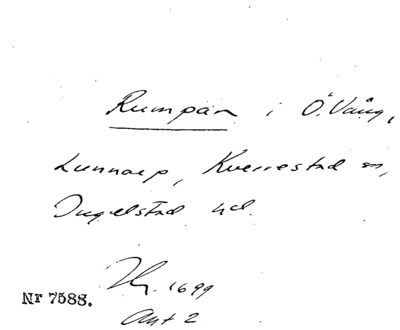 Rumpan i Ö. Vång,
Lunnarp, Kverrestad sn,
Ingelstad hd.
Nr 7588.
1699
Akt 2